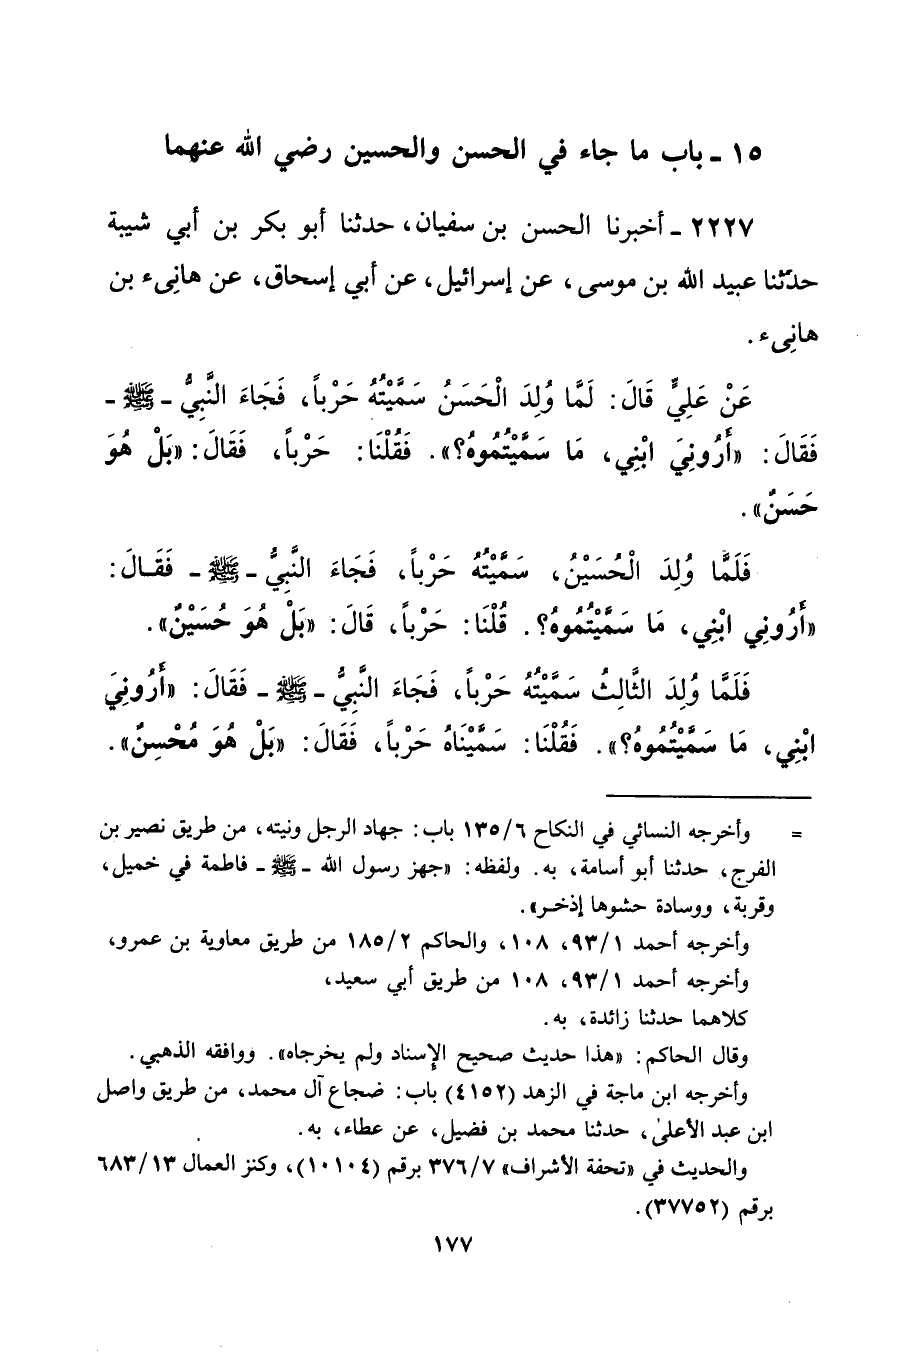 ١٥ ـ باب ما جاء في الحسن والحسين رضي الله عنهما
٢٢٢٧ ـ أخبرنا الحسن بن سفيان، حدثنا أبو بكر بن أبي شيبة
حدّثنا عبيد الله بن موسى، عن إسرائيل، عن أبي إسحاق، عن هانِىء بن
هانِىء.
عَنْ عَلِيٍّ قَالَ: لَمَّا وُلِدَ الْحَسَنُ سَمَّيْتُهُ حَرْباً، فَجَاءَ النَّبِيُّ ـ ﷺ ـ
فَقَالَ: «أَرُونِيَ ابْنِي، مَا سَمَّيْتُمُوهُ؟». فَقُلْنَا: حَرْباً، فَقَالَ: «بَلْ هُوَ
حَسَنٌ».
فَلَمَّا وُلِدَ الْحُسَيْنُ، سَمَّيْتُهُ حَرْباً، فَجَاءَ النَّبِيُّ ـ ﷺ ـ فَقَـالَ:
«أَرُونِي ابْنِي، مَا سَمَّيْتُمُوهُ؟. قُلْنَا: حَرْباً، قَالَ: «بَلْ هُوَ حُسَيْنٌ».
فَلَمَّا وُلِدَ الثَّالِثُ سَمَّيْتُهُ حَرْباً، فَجَاءَ النَّبِيُّ ـ ﷺ ـ فَقَالَ: «أَرُونِيَ
ابْنِي، مَا سَمَّيْتُمُوهُ؟». فَقُلْنَا: سَمَّيْنَاهُ حَرْباً، فَقَالَ: «بَلْ هُوَ مُحْسِنٌ».
= وأخرجه النسائي في النكاح ١٣٥/٦ باب: جهاد الرجل ونيته، من طريق نصير بن
الفرج، حدثنا أبو أسامة، به. ولفظه: «جهز رسول الله ـ ﷺ ـ فاطمة في خميل،
وقربة، ووسادة حشوها إذخـر».
وأخرجه أحمد ٩٣/١، ١٠٨، والحاكم ١٨٥/٢ من طريق معاوية بن عمرو،
وأخرجه أحمد ٩٣/١، ١٠٨ من طريق أبي سعيد،
كلاهما حدثنا زائدة، به.
وقال الحاكم: «هذا حديث صحيح الإسناد ولم يخرجاه». ووافقه الذهبي.
وأخرجه ابن ماجة في الزهد (٤١٥٢) باب: ضجاع آل محمد، من طريق واصل
ابن عبد الأعلىٰ، حدثنا محمد بن فضيل، عن عطاء، به.
والحديث في «تحفة الأشراف» ٣٧٦/٧ برقم (١٠١٠٤)، وكنز العمال ٦٨٣/١٣
برقم (٣٧٧٥٢).
١٧٧